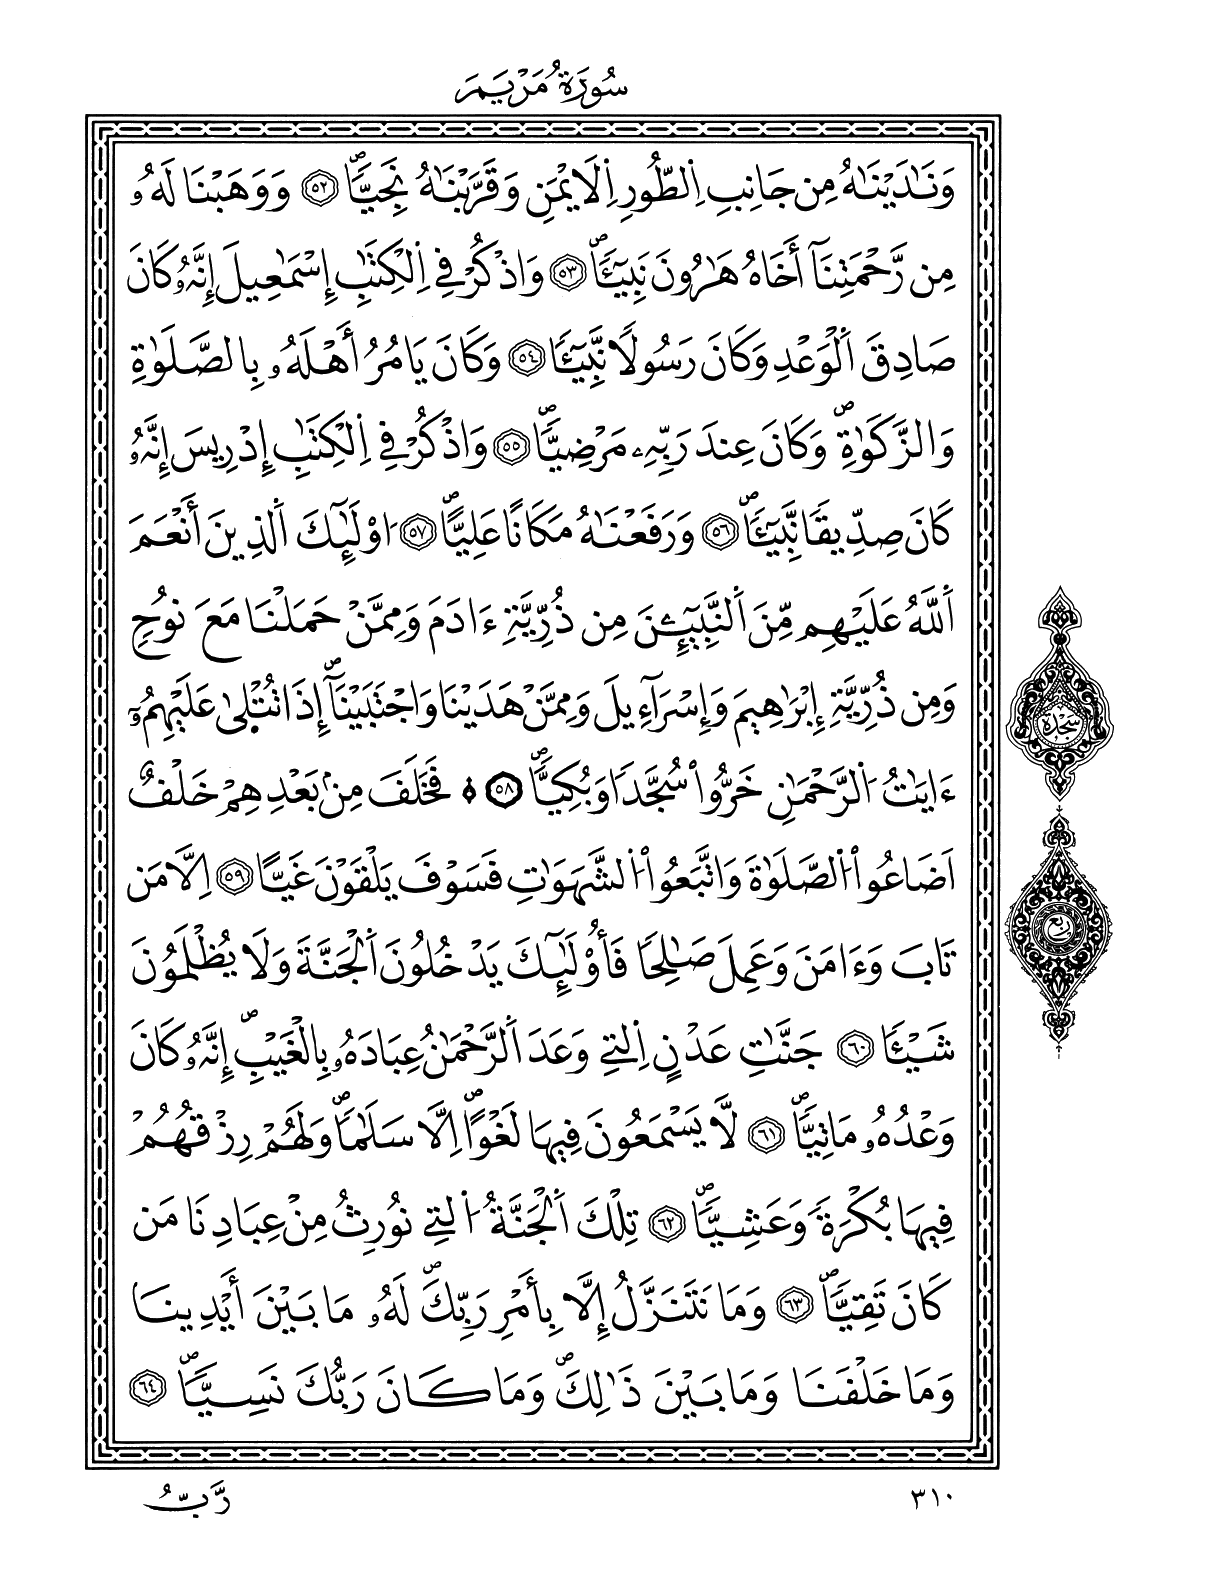 سُورَةُ مَرْيَمَ
وَنَٰدَيْنَٰهُ مِن جَانِبِ اِ۬لطُّورِ اِ۬لَايْمَنِ وَقَرَّبْنَٰهُ نَجِيّاٗۖ ٥٢ وَوَهَبْنَا لَهُۥ
مِن رَّحْمَتِنَآ أَخَاهُ هَٰرُونَ نَبِيٓـٔاٗۖ ٥٣ وَاذْكُرْ فِے اِ۬لْكِتَٰبِ إِسْمَٰعِيلَ إِنَّهُۥ كَانَ
صَادِقَ اَ۬لْوَعْدِ وَكَانَ رَسُولاٗ نَّبِيٓـٔاٗ ٥٤ وَكَانَ يَامُرُ أَهْلَهُۥ بِالصَّلَوٰةِ
وَالزَّكَوٰةِۖ وَكَانَ عِندَ رَبِّهِۦ مَرْضِيّاٗۖ ٥٥ وَاذْكُرْ فِے اِ۬لْكِتَٰبِ إِدْرِيسَ إِنَّهُۥ
كَانَ صِدِّيقاٗ نَّبِيٓـٔاٗۖ ٥٦ وَرَفَعْنَٰهُ مَكَاناً عَلِيّاٗۖ ٥٧ اُ۟وْلَٰٓئِكَ اَ۬لذِينَ أَنْعَمَ
اَ۬للَّهُ عَلَيْهِم مِّنَ اَ۬لنَّبِيٓـِٕۧنَ مِن ذُرِّيَّةِ ءَادَمَ وَمِمَّنْ حَمَلْنَا مَعَ نُوحٖ
وَمِن ذُرِّيَّةِ إِبْرَٰهِيمَ وَإِسْرَآءِيلَ وَمِمَّنْ هَدَيْنَا وَاجْتَبَيْنَآۖ إِذَا تُتْل۪يٰ عَلَيْهِمُۥٓ
ءَايَٰتُ اُ۬لرَّحْمَٰنِ خَرُّواْ سُجَّداٗ وَبُكِيّاٗۖ ٥٨ فَخَلَفَ مِنۢ بَعْدِهِمْ خَلْفٌ
اَضَاعُواْ اُ۬لصَّلَوٰةَ وَاتَّبَعُواْ اُ۬لشَّهَوَٰتِ فَسَوْفَ يَلْقَوْنَ غَيّاً ٥٩ اِلَّا مَن
تَابَ وَءَامَنَ وَعَمِلَ صَٰلِحاٗ فَأُوْلَٰٓئِكَ يَدْخُلُونَ اَ۬لْجَنَّةَ وَلَا يُظْلَمُونَ
شَيْـٔاٗ ٦٠ جَنَّٰتِ عَدْنٍ اِ۬لتِے وَعَدَ اَ۬لرَّحْمَٰنُ عِبَادَهُۥ بِالْغَيْبِۖ إِنَّهُۥ كَانَ
وَعْدُهُۥ مَاتِيّاٗۖ ٦١ لَّا يَسْمَعُونَ فِيهَا لَغْواً اِلَّا سَلَٰماٗۖ وَلَهُمْ رِزْقُهُمْ
فِيهَا بُكْرَةٗ وَعَشِيّاٗۖ ٦٢ تِلْكَ اَ۬لْجَنَّةُ اُ۬لتِے نُورِثُ مِنْ عِبَادِنَا مَن
كَانَ تَقِيّاٗۖ ٦٣ وَمَا نَتَنَزَّلُ إِلَّا بِأَمْرِ رَبِّكَۖ لَهُۥ مَا بَيْنَ أَيْدِينَا
وَمَا خَلْفَنَا وَمَا بَيْنَ ذَٰلِكَۖ وَمَا كَانَ رَبُّكَ نَسِيّاٗۖ ٦٤
سجدة
ربع
٣١٠
رَّبُّ